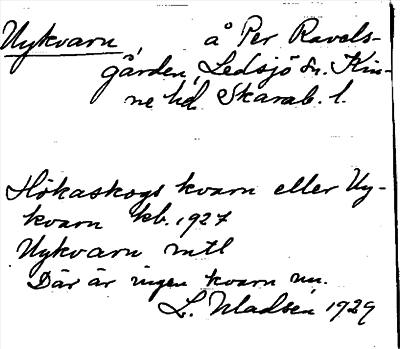 Nykvarn, å Per Ravels-
gården, Ledsjö sn. Kin-
ne hd. Skarab. l.
Hökaskogs kvarn eller Ny-
kvarn kb. 1927
Nykvarn mtl
Där är ingen kvarn nu.
L. Madsén 1929